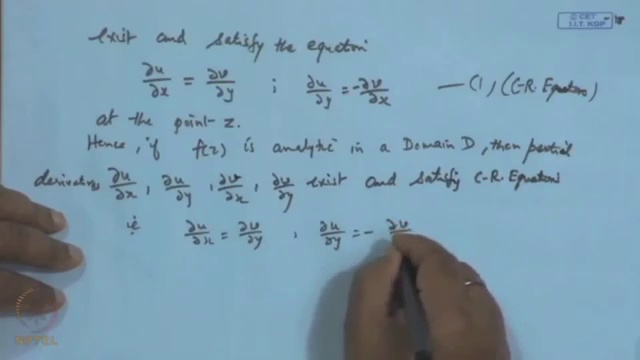 © CET
I.I.T. KGP
exist and satisfy the equation
∂u/∂x = ∂v/∂y ; ∂u/∂y = -∂v/∂x — (1) (C-R. Equations)
at the point z.
Hence, if f(z) is analytic in a Domain D, then partial
derivatives ∂u/∂x, ∂u/∂y, ∂v/∂x, ∂v/∂y exist and satisfy C-R. Equations
ie ∂u/∂x = ∂v/∂y, ∂u/∂y = - ∂v/
NPTEL